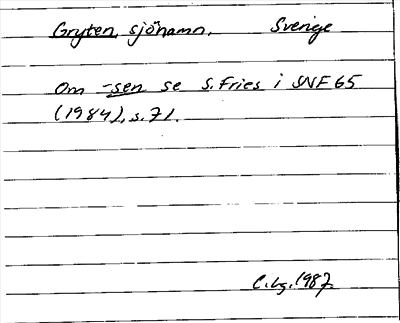 Gryten, sjönamn, Sverige
Om -sen se S. Fries i SNF 65
(1984), s. 71.
C. Lg. 1987